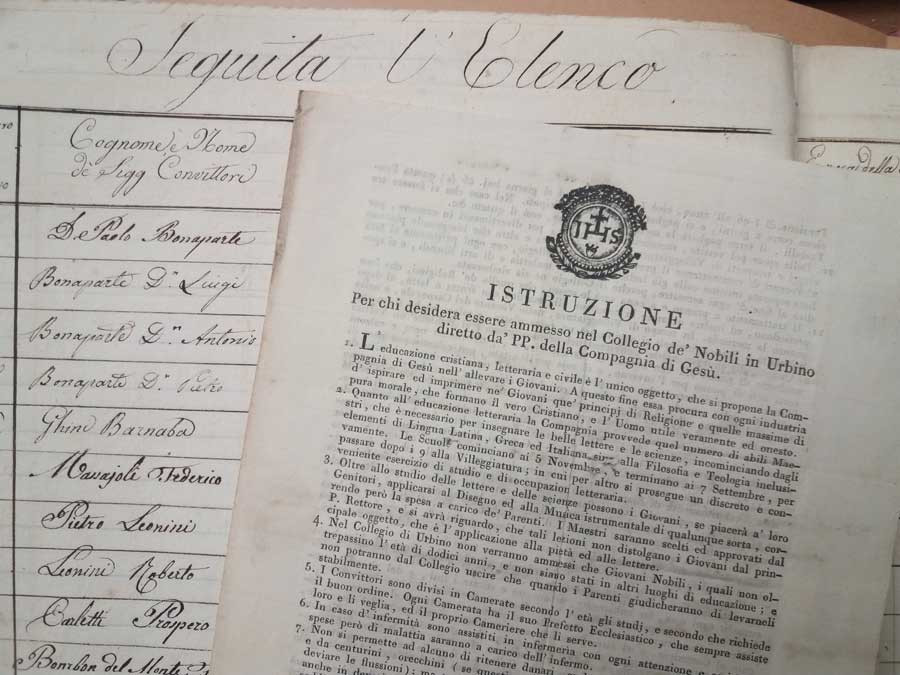 Seguita l'Elenco
Cognome e Nome
de' Sigg Convittori
De Paolo Bonaparte
Bonaparte Dn. Luigi
Bonaparte Dn. Antonio
Bonaparte Dn. Pietro
Ghini Barnaba
Massajoli Federico
Pietro Leonini
Leonini Roberto
Carletti Prospero
Bombon del Monte
della
IHS
ISTRUZIONE
Per chi desidera essere ammesso nel Collegio de' Nobili in Urbino
diretto da' PP. della Compagnia di Gesù.
1. L' educazione cristiana, letteraria e civile è l' unico oggetto, che si propone la Com-
pagnia di Gesù nell' allevare i Giovani. A questo fine essa procura con ogni industria
d' ispirare ed imprimere ne' Giovani que' principj di Religione e quelle massime di
pura morale, che formano il vero Cristiano, e l' Uomo utile veramente ed onesto.
2. Quanto all' educazione letteraria la Compagnia provvede quel numero di abili Mae-
stri, che è necessario per insegnare le belle lettere e le scienze, incominciando dagli
elementi di Lingua Latina, Greca ed Italiana sino alla Filosofia e Teologia inclusi-
vamente. Le Scuole cominciano ai 5 Novembre, e terminano ai 7 Settembre, per
passare dopo i 9 alla Villeggiatura; in cui per altro si prosegue un discreto e con-
veniente esercizio di studio e di occupazion letteraria.
3. Oltre allo studio delle lettere e delle scienze possono i Giovani, se piacerà a' loro
Genitori, applicarsi al Disegno ed alla Musica istrumentale di qualunque sorta, cor-
rendo però la spesa a carico de' Parenti. I Maestri saranno scelti ed approvati dal
P. Rettore, e si avrà riguardo, che tali lezioni non distolgano i Giovani dal prin-
cipale oggetto, che è l' applicazione alla pietà ed alle lettere.
4. Nel Collegio di Urbino non verranno ammessi che Giovani Nobili, i quali non ol-
trepassino l' età di dodici anni, e non siano stati in altri luoghi di educazione; e
non potranno dal Collegio uscire che quando i Parenti giudicheranno di levarneli
stabilmente.
5. I Convittori sono divisi in Camerate secondo l' età gli studj, e secondo che richiede
il buon ordine. Ogni Camerata ha il suo Prefetto Ecclesiastico, che sempre assiste
loro e li veglia, ed il proprio Cameriere che li serve.
6. In caso d' infermità sono assistiti in infermeria con ogni attenzione
spese però di malattia saranno a carico dell' infermo.
7. Non si permette ad alcuno di ritenere danari
e da centurini, orecchini (se
deviare le flussioni);
anche in